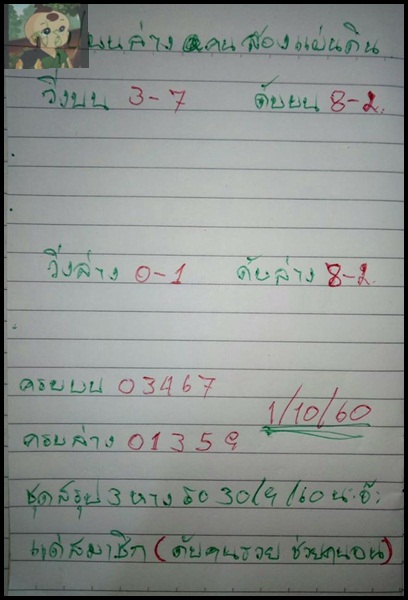 บนล่าง คนสองแผ่นดิน
วิ่งบน 3-7 ดับบน 8-2.
วิ่งล่าง 0-1 ดับล่าง 8-2.
ครบบน 03467
1/10/60
ครบล่าง 01359
ชุดสรุป 3 หาง รอ 30/9/60 น.จ้ะ
แด่สมาชิก (ดับคนรวย ช่วยคนจน)